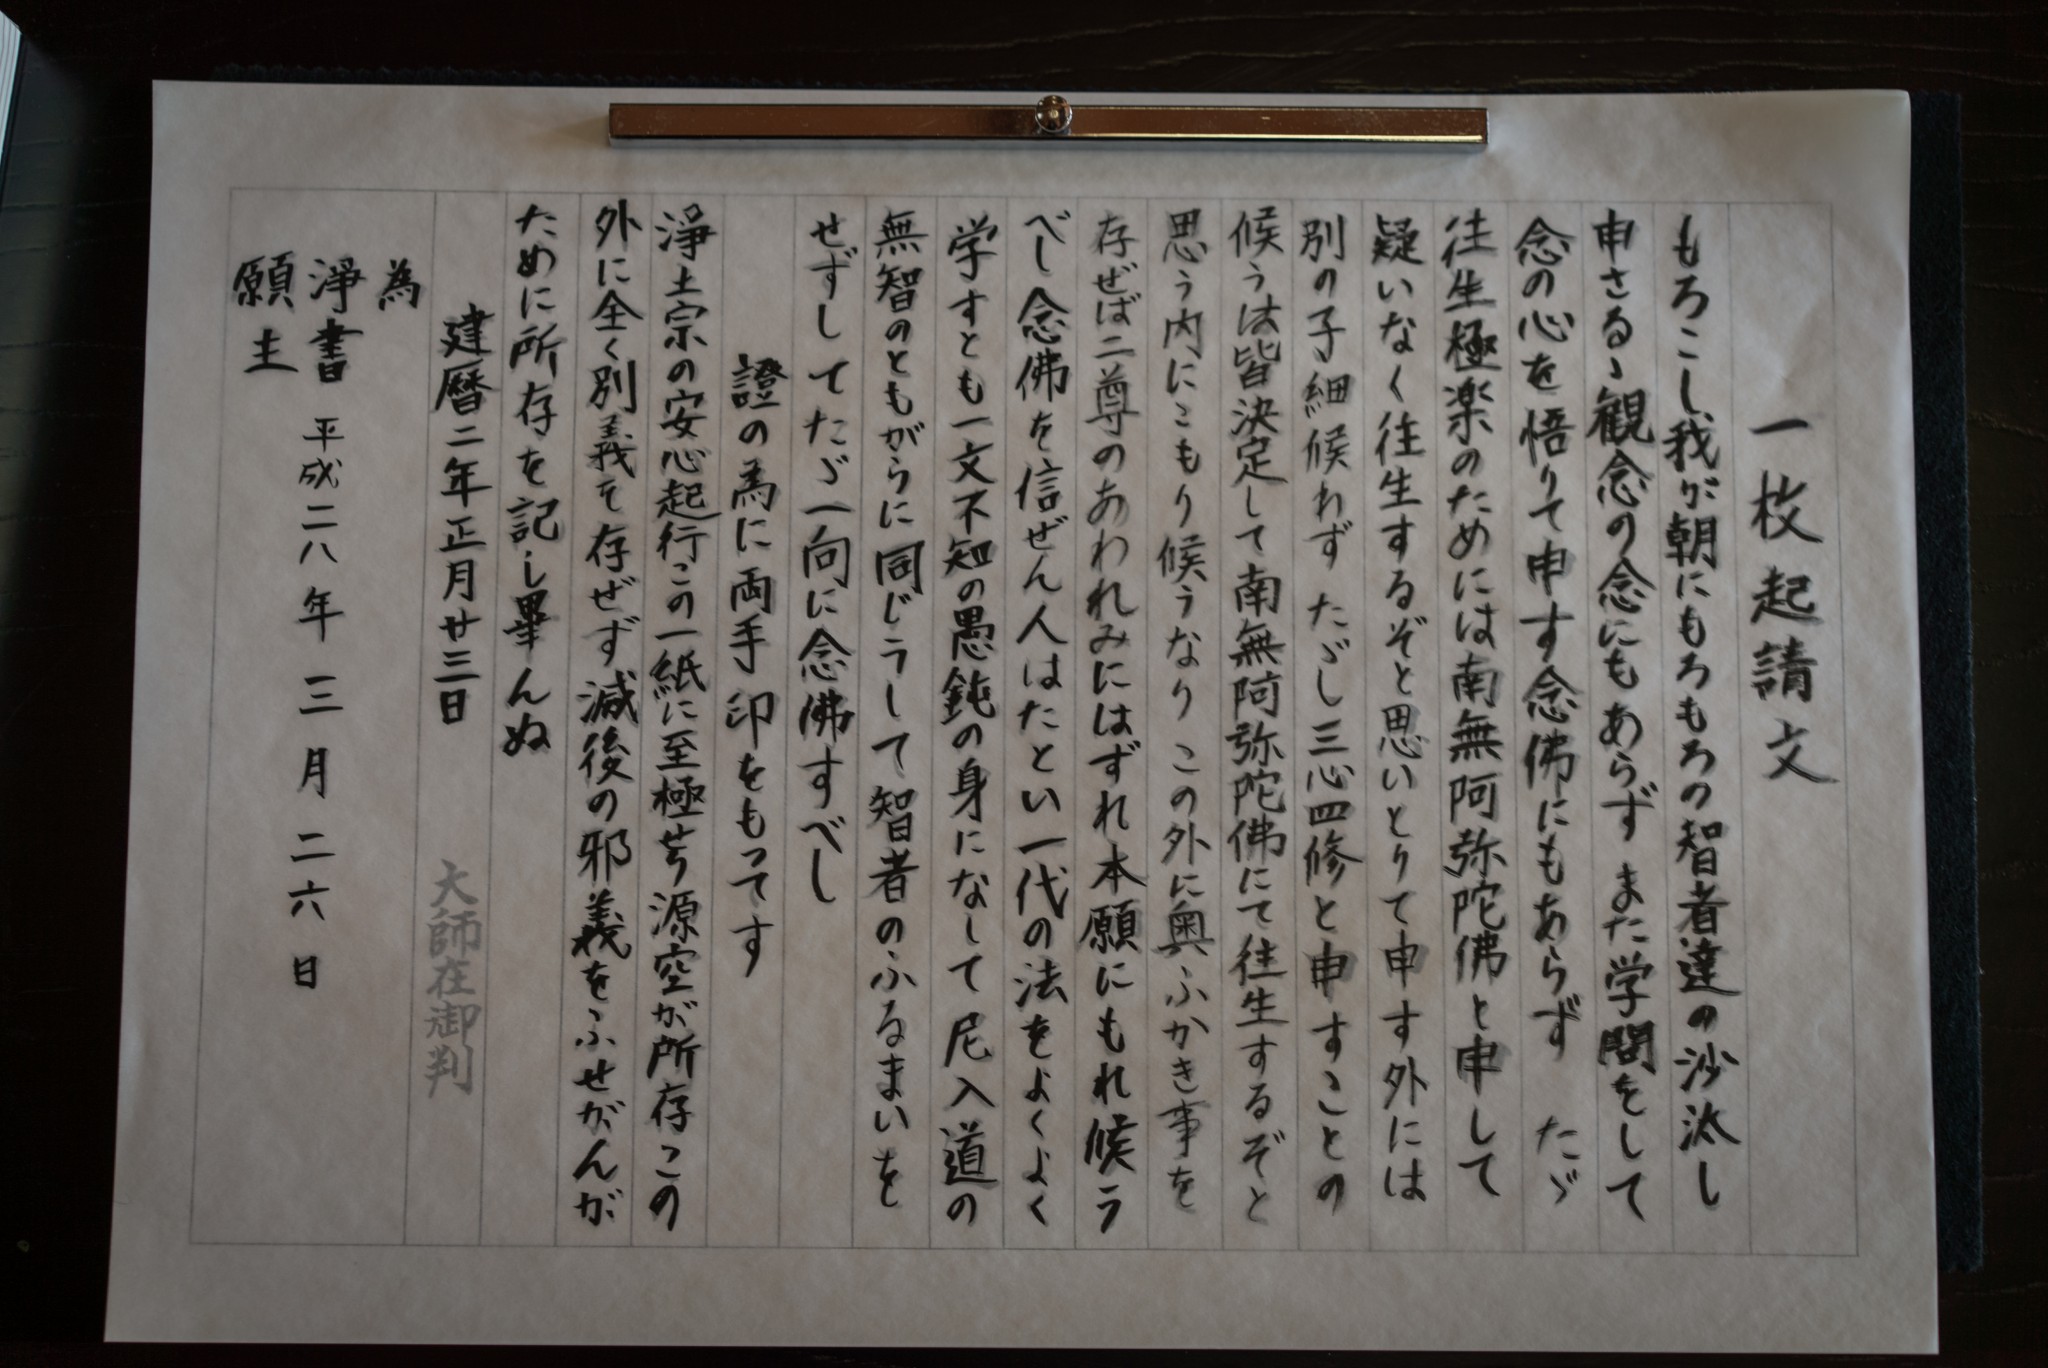 一枚起請文
もろこし我が朝にもろもろの智者達の沙汰し
申さるゝ観念の念にもあらず また学問をして
念の心を悟りて申す念佛にもあらず たゞ
往生極楽のためには南無阿弥陀佛と申して
疑いなく往生するぞと思いとりて申す外には
別の子細候わず たゞし三心四修と申すことの
候うは皆決定して南無阿弥陀佛にて往生するぞと
思う内にこもり候うなり この外に奥ふかき事を
存ぜば二尊のあわれみにはずれ本願にもれ候う
べし 念佛を信ぜん人はたとい一代の法をよくよく
学すとも一文不知の愚鈍の身になして 尼入道の
無智のともがらに同じうして智者のふるまいを
せずしてたゞ一向に念佛すべし
證の為に両手印をもってす
淨土宗の安心起行この一紙に至極せり 源空が所存この
外に全く別義を存ぜず 滅後の邪義をふせがんが
ために所存を記し畢んぬ
建暦二年正月廿三日 大師在御判
為
淨書 平成二八年三月二六日
願主